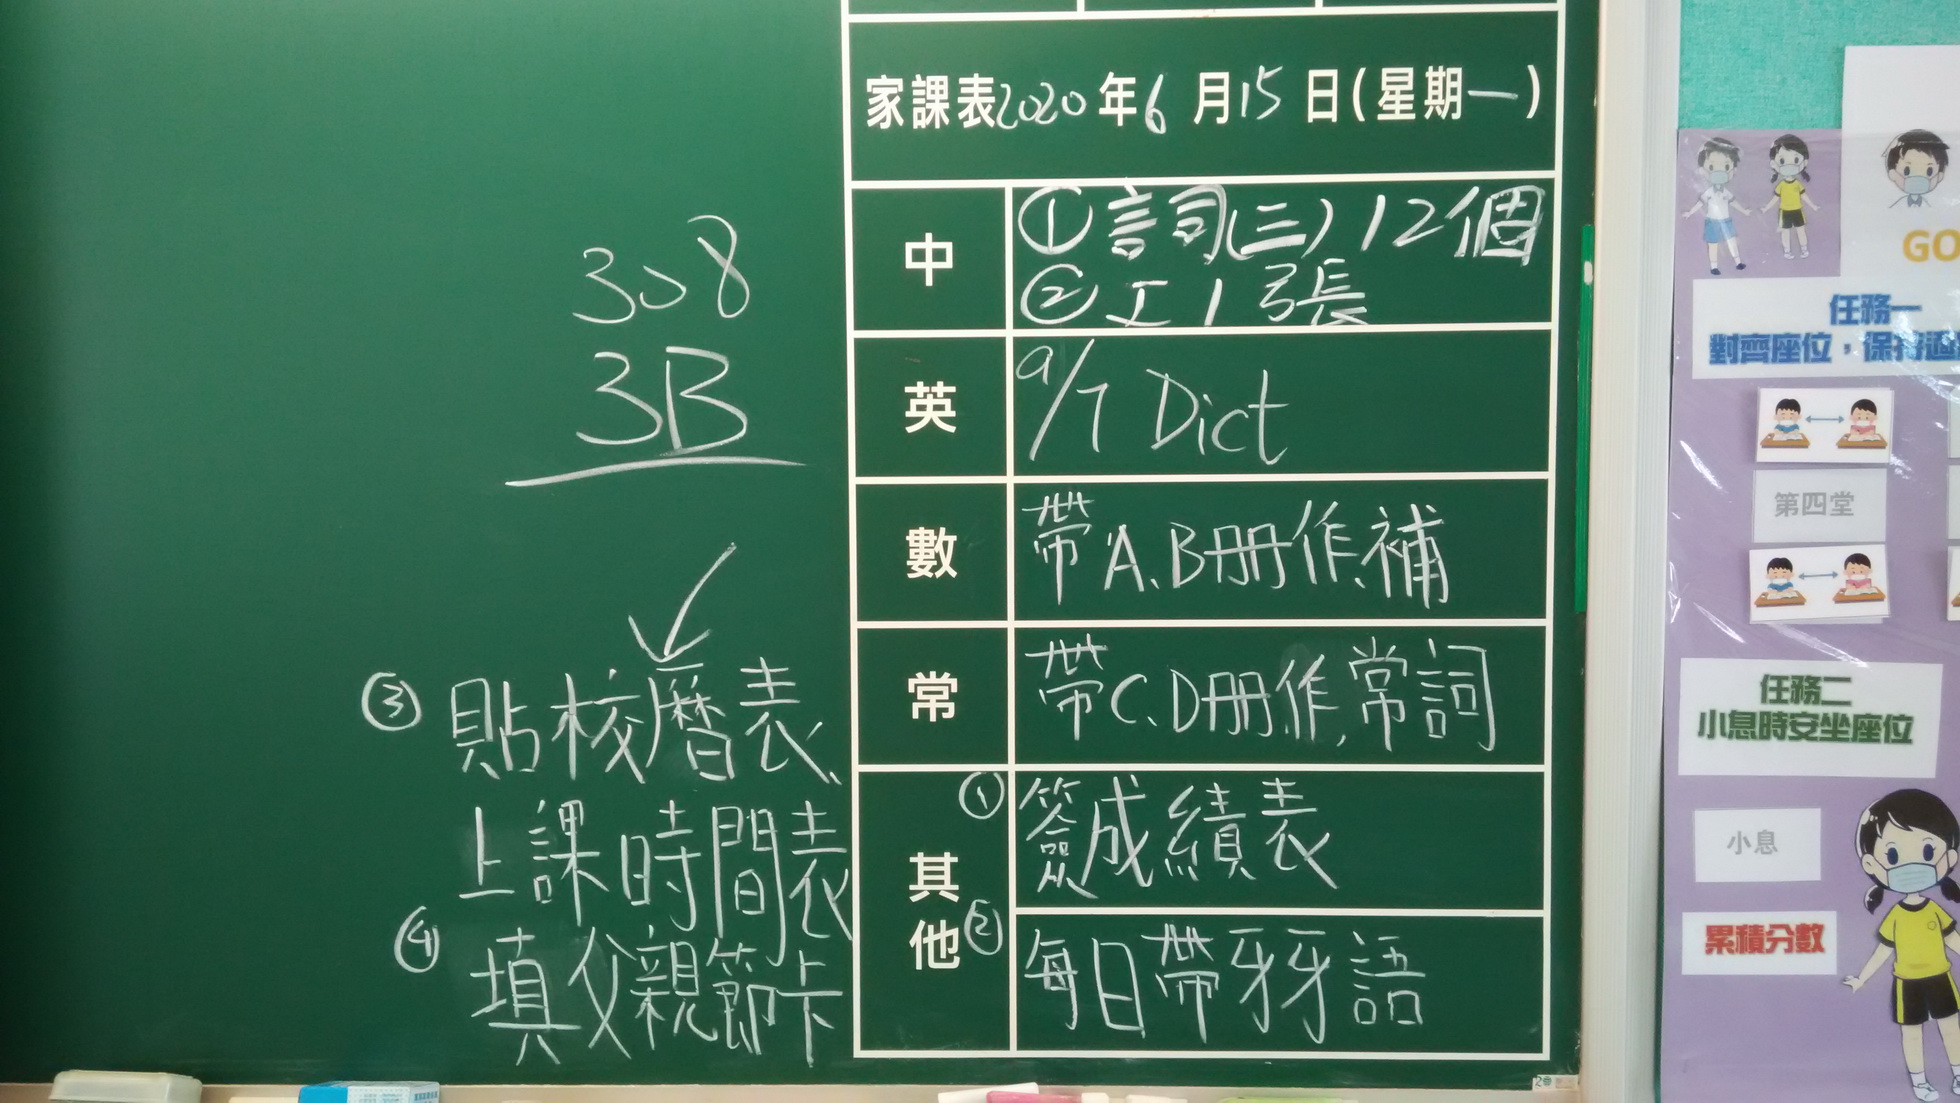 家課表2020年6月15日(星期一)
308
3B
中
①詞(三)12個
②工1張
英
9/7 Dict
數
帶A、B冊作、補
常
帶C、D冊作、常詞
其他
①簽成績表
②每日帶牙牙語
③貼校曆表、
上課時間表
④填父親節卡
GO
任務一
對齊座位，保持適
第四堂
任務二
小息時安坐座位
小息
累積分數